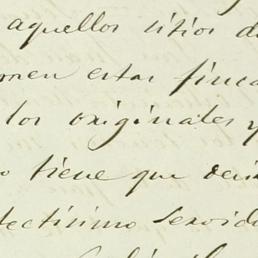 aquellos sitios de
men estas finca
los originales y
tiene que deci
tectisimo servido